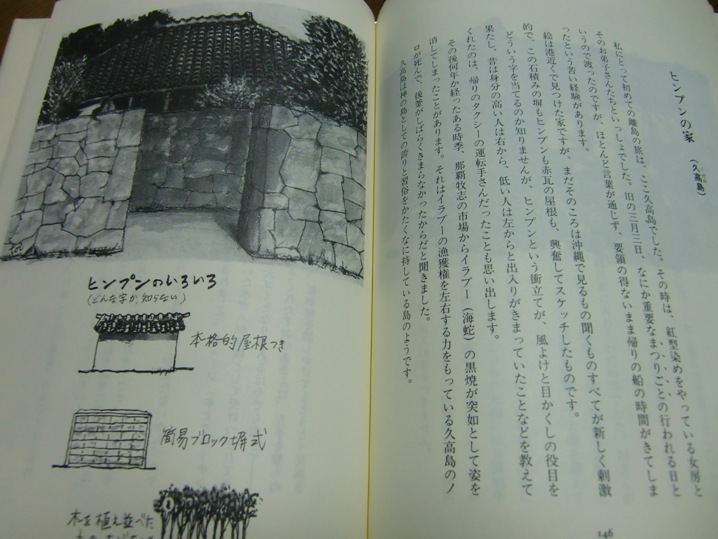 ヒンプンの家　（久高島）
私にとって初めての離島の旅は、ここ久高島でした。その時は、紅型染めをやっている女房と
そのお弟子さんたちといっしょでした。旧の三月三日、なにか重要なまつりごとの行われる日と
いうので渡ったのですが、ほとんど言葉が通じず、要領の得ないまま帰りの船の時間がきてしま
ったという苦い経験があります。
絵は港近くで見つけた家ですが、まだそのころは沖縄で見るもの聞くものすべてが新しく刺激
的で、この石積みの塀もヒンプンも赤瓦の屋根も、興奮してスケッチしたものです。
どういう字を当てるのか知りませんが、ヒンプンという衝立てが、風よけと目かくしの役目を
果たし、昔は身分の高い人は右から、低い人は左からと出入りがきまっていたことなどを教えて
くれたのは、帰りのタクシーの運転手さんだったことも思い出します。
その後何年か経ったある時季、那覇牧志の市場からイラブー（海蛇）の黒焼が突如として姿を
消してしまったことがあります。それはイラブーの漁獲権を左右する力をもっている久高島のノ
ロが死んで、後釜がしばらくきまらなかったからだと聞きました。
久高島は神の島としての誇りと習俗をかたくなに持している島のようです。
146
ヒンプンのいろいろ
（どんな字か、知らない）
本格的屋根つき
簡易ブロック塀式
木を植え並べた